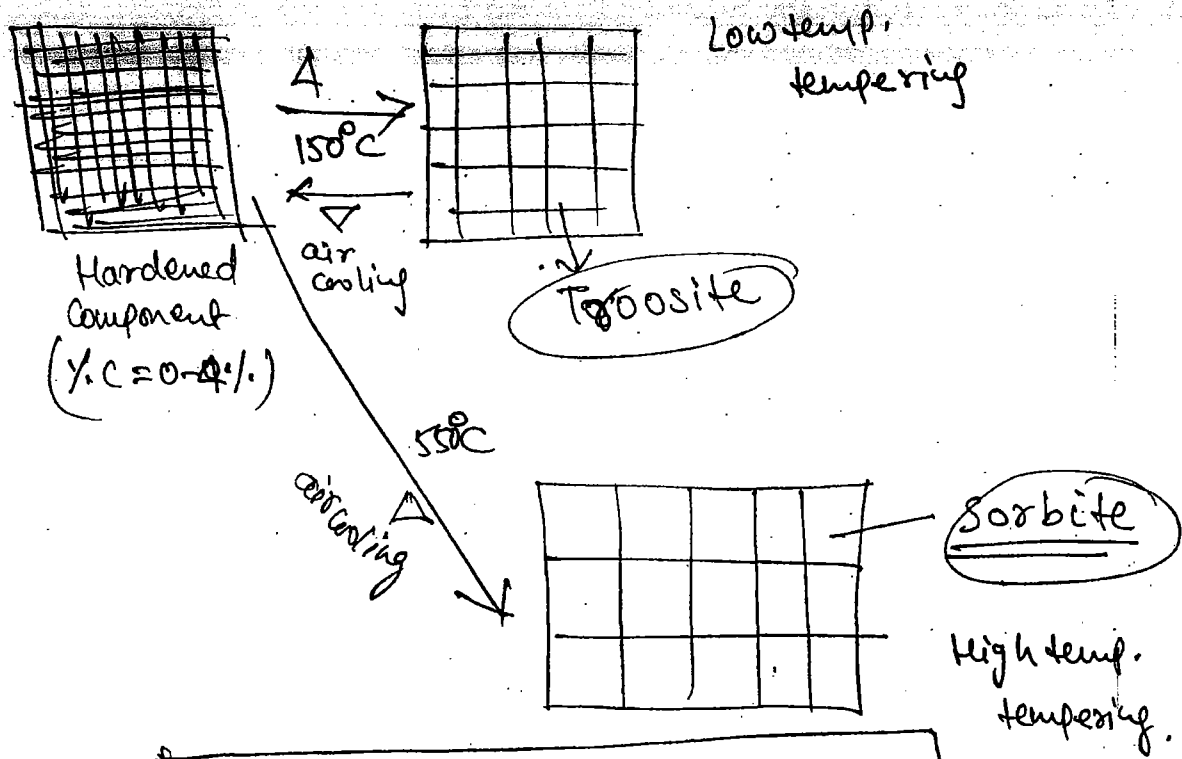 Low temp.
tempering
Δ
150°C
∇
air
cooling
Troosite
Hardened
Component
(%C = 0.4%)
550°C
air cooling
Δ
Sorbite
High temp.
tempering.